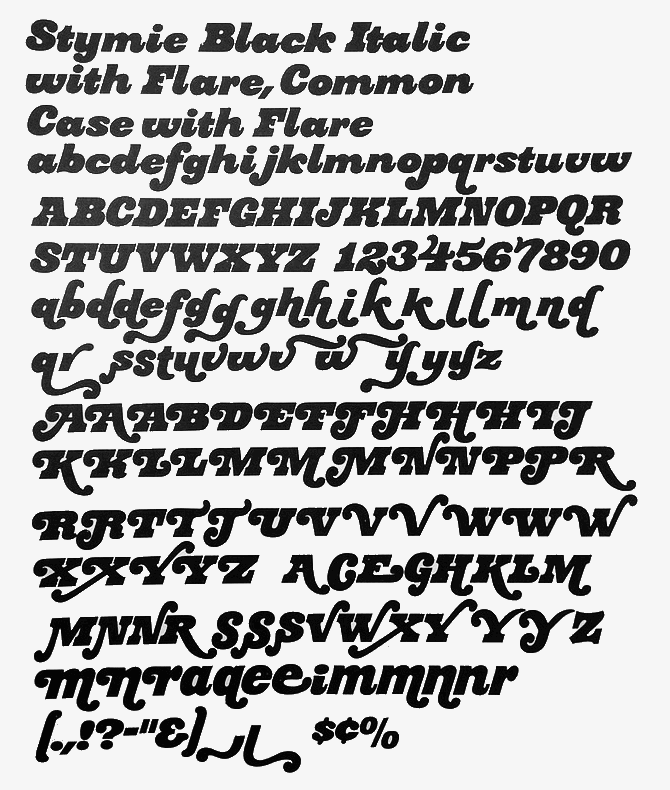 Stymie Black Italic
with Flare, Common
Case with Flare
abcdefghijklmnopqrstuvw
ABCDEFGHIJKLMNOPQR
STUVWXYZ 1234567890
qbddefgggghhikkllmnd
qr sstyuvwv w yyyz
AAABDEFFHHHIJ
KKLLMMMMNNPPR
RRTTTUVVVWWW
XXYYZ ACEGHKLM
MNNRSSSVWXYYYZ
mnraqeeimmnnr
(.,!?-"&) $¢%